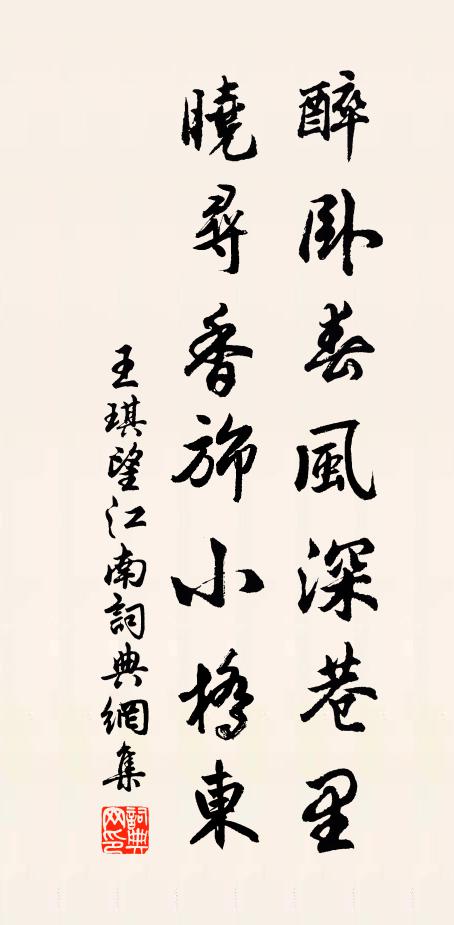 醉卧春風深巷里
曉尋香旆小橋東
王琪望江南詞典網集
詞典網印